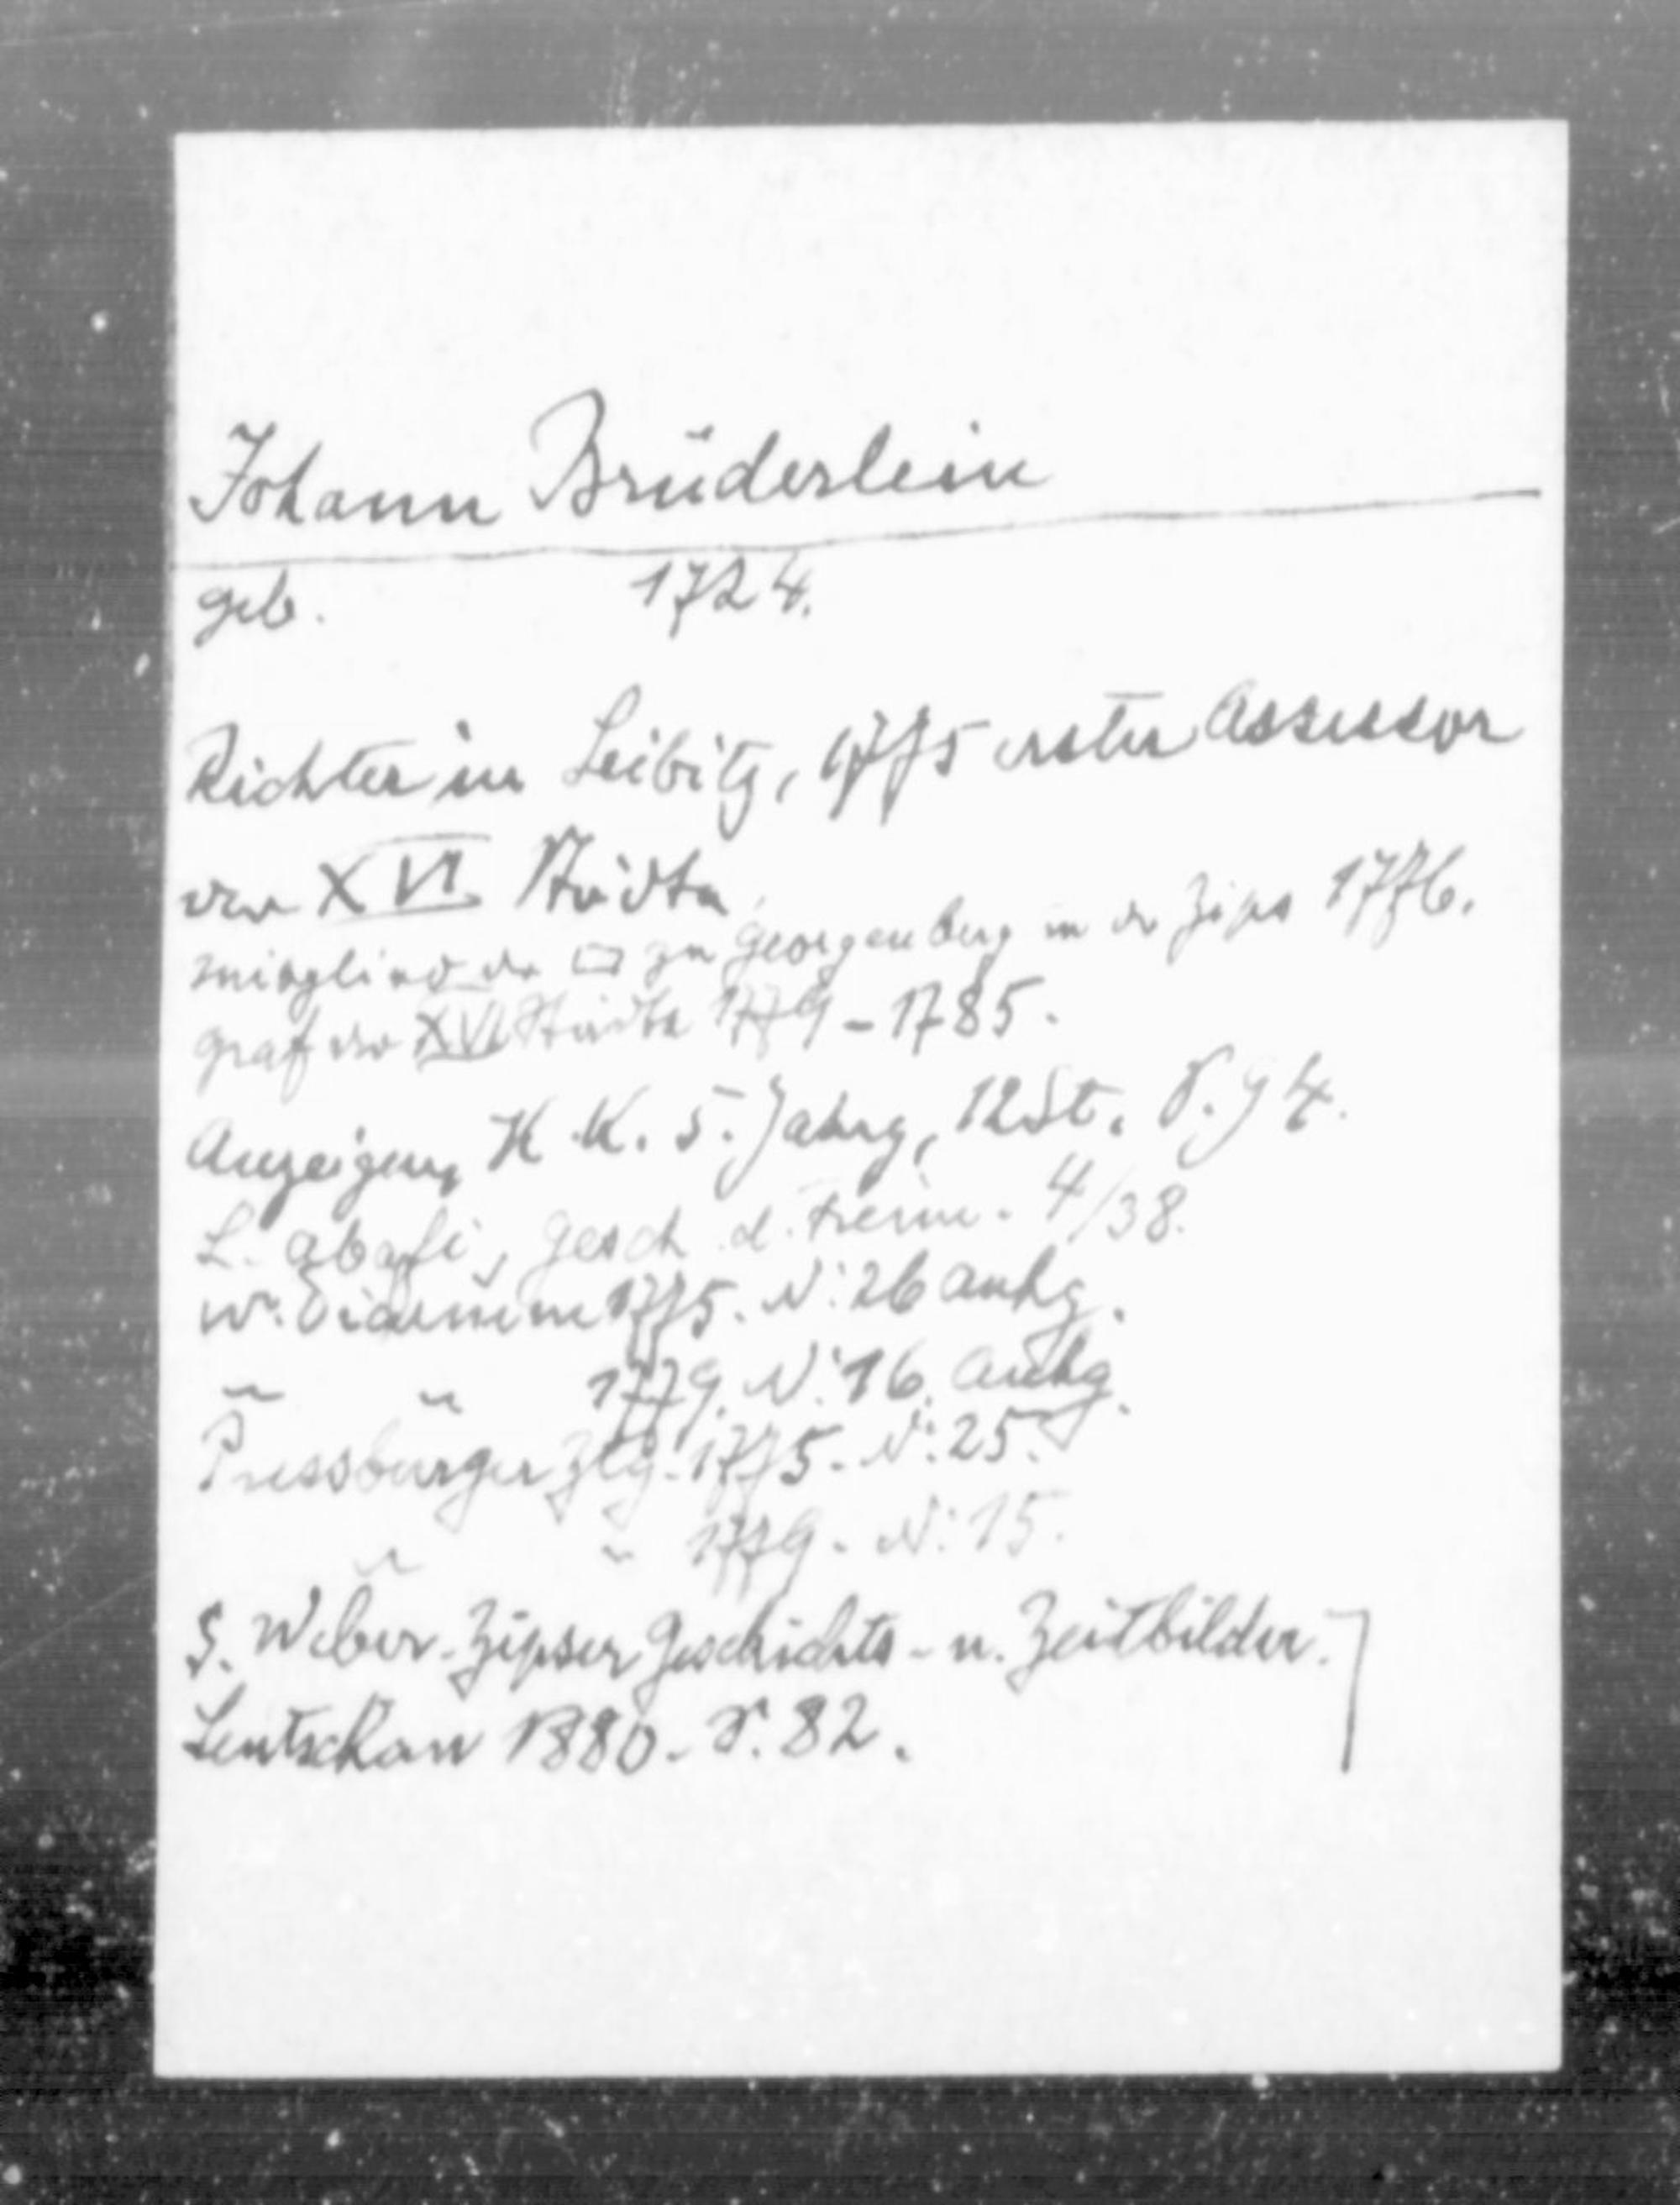 Johann Brüderlein
geb. 1724.
Richter in Leibitz, 1775 erster Assessor
der XVI Städte,
Mitglied der □ zu Georgenberg in der Zips 1776.
Graf der XVI Städte 1779-1785.
Anzeigen, K. K. 5. Jahrg, 12 St. S. 94.
L. Abafi, Gesch. d. Freim. 4/38.
W. Diarium 1775. N: 26 Anhg.
" " 1779. N: 16. Anhg.
Pressburger Ztg. 1775. N: 25.
" " 1779. N: 15.
S. Weber. Zipser Geschichts- u. Zeitbilder.
Leutschau 1880. S. 82.